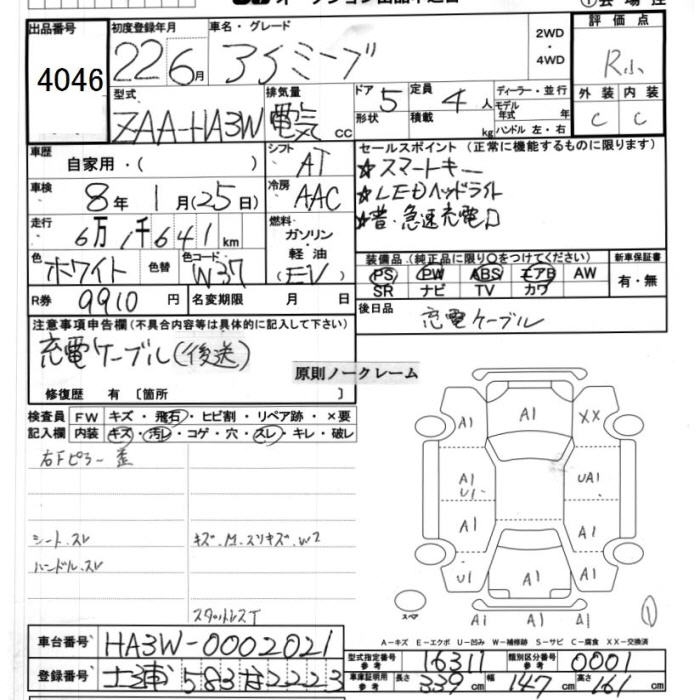 出品番号
4046
初度登録年月
22 6月
車名・グレード
アイミーブ
2WD
・
4WD
評価点
R小
外装 内装
C C
型式
ZAA-HA3W
排気量
電気 cc
ドア 5
形状
定員 4 人
積載 kg
ディーラー・並行
モデル
年式 年
ハンドル 左・右
車歴
自家用・(
シフト
AT
車検
8年 1月(25日)
冷房
AAC
走行
6万1千641km
燃料
ガソリン
・
軽油
(EV)
色 ホワイト 色替
色コード W37
R券 9910円
名変期限 月 日
セールスポイント(正常に機能するものに限ります)
☆スマートキー
☆LEDヘッドライト
☆普・急速充電口
装備品(純正品に限り○をつけてください)
PS PW ABS エアB AW
SR ナビ TV カワ
新車保証書
有・無
後日品
充電ケーブル
注意事項申告欄(不具合内容等は具体的に記入して下さい)
充電ケーブル(後送)
原則ノークレーム
修復歴 有〔箇所 〕
検査員
記入欄
FW キズ・飛石・ヒビ割・リペア跡・×要
内装 キズ・汚レ・コゲ・穴・スレ・キレ・破レ
右Fピラー歪
シート.スレ
ハンドル.スレ
キズ.M.スリキズ.W2
スタットレスT
A1 A1 XX
A1 U1 UA1
A1 A1
U1 A1 A1
スペア
A1 A1 A1
1
A-キズ E-エクボ U-凹み W-補修跡 S-サビ C-腐食 XX-交換済
車台番号 HA3W-0002021
登録番号 土浦 583 な 2223
型式指定番号
参考
16311
類別区分番号
参考
0001
車庫証明用
参考
長さ 339cm 幅 147cm 高さ 161cm